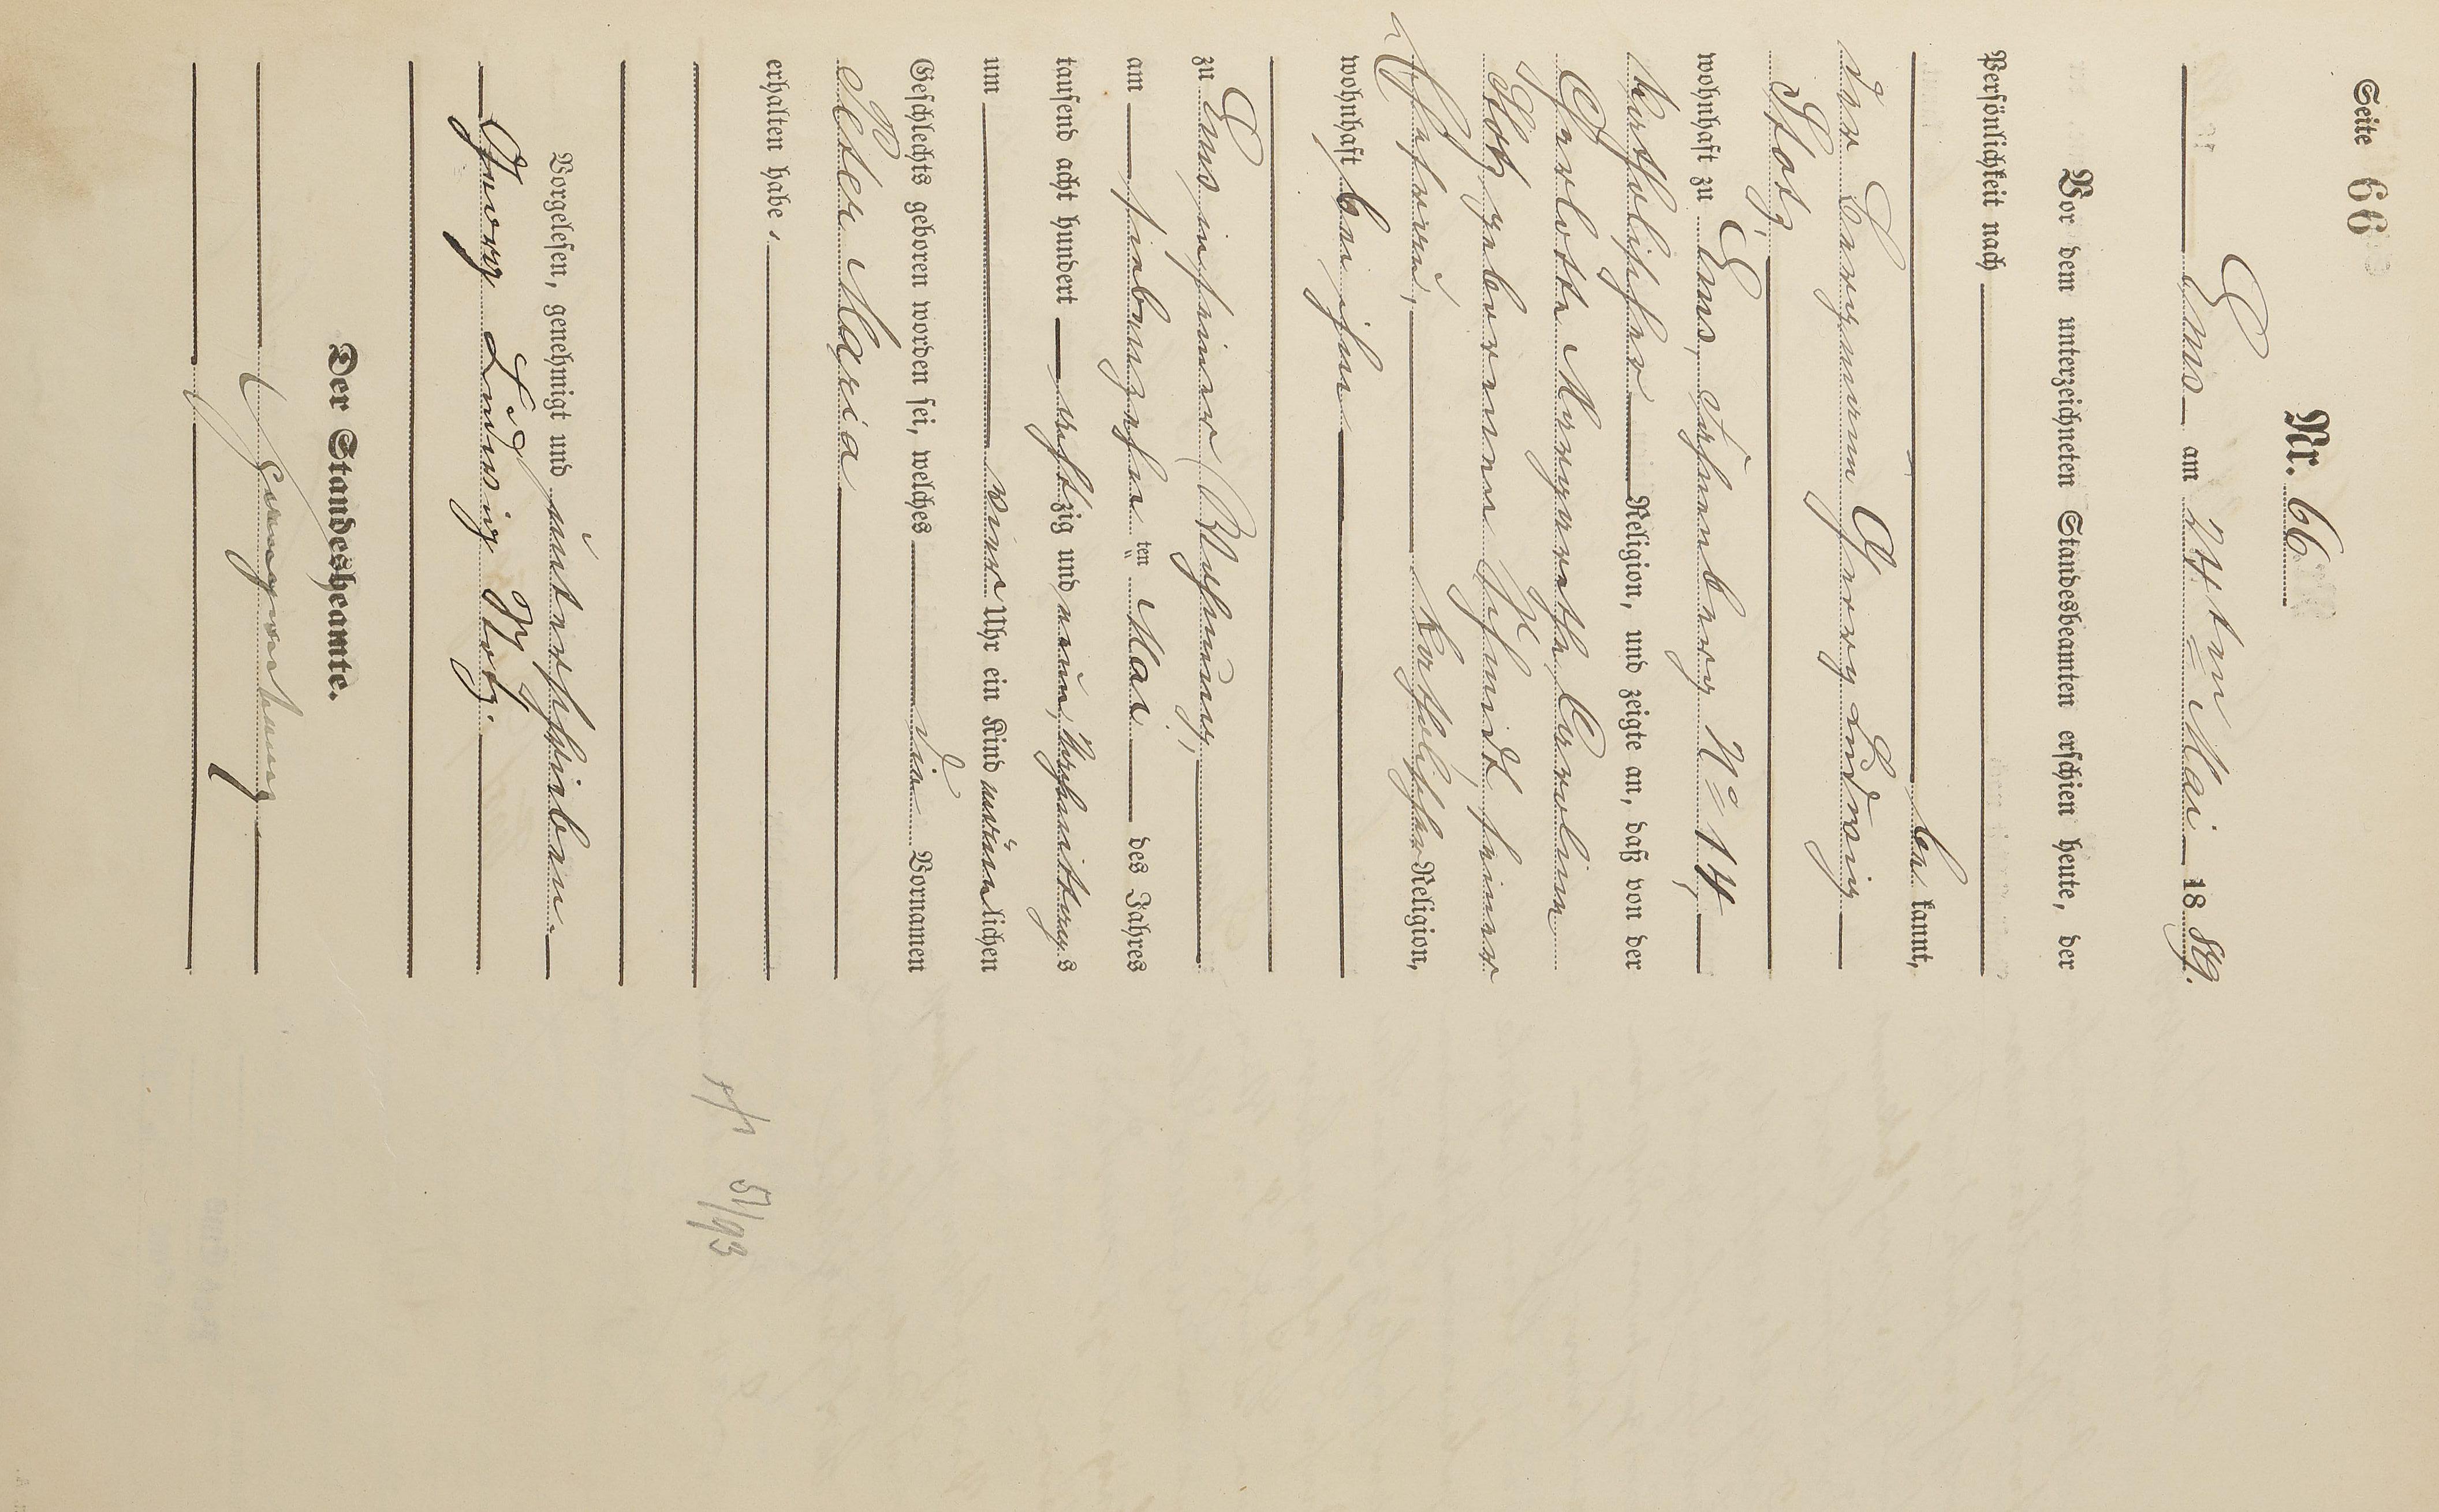 Seite 66
Nr. 66
Ems am 24ten Mai 1889.
Vor dem unterzeichneten Standesbeamten erschien heute, der
Persönlichkeit nach
be kannt,
der Bergmann Georg Ludwig
Stotz,
wohnhaft zu Ems, Eisenberg No 14,
katholischer Religion, und zeigte an, daß von der
Charlotte Margarethe Caroline
Stotz geborenen Schmidt, seiner
Ehefrau, katholischer Religion,
wohnhaft bei ihm
zu Ems in seiner Wohnung,
am siebenzehn ten Mai des Jahres
tausend acht hundert achtzig und neun, Nachmittags
um vier Uhr ein Kind männlichen
Geschlechts geboren worden sei, welches die Vornamen
Peter Maria
erhalten habe.
Vorgelesen, genehmigt und unterschrieben.
Georg Ludwig Stotz.
Der Standesbeamte.
5/93